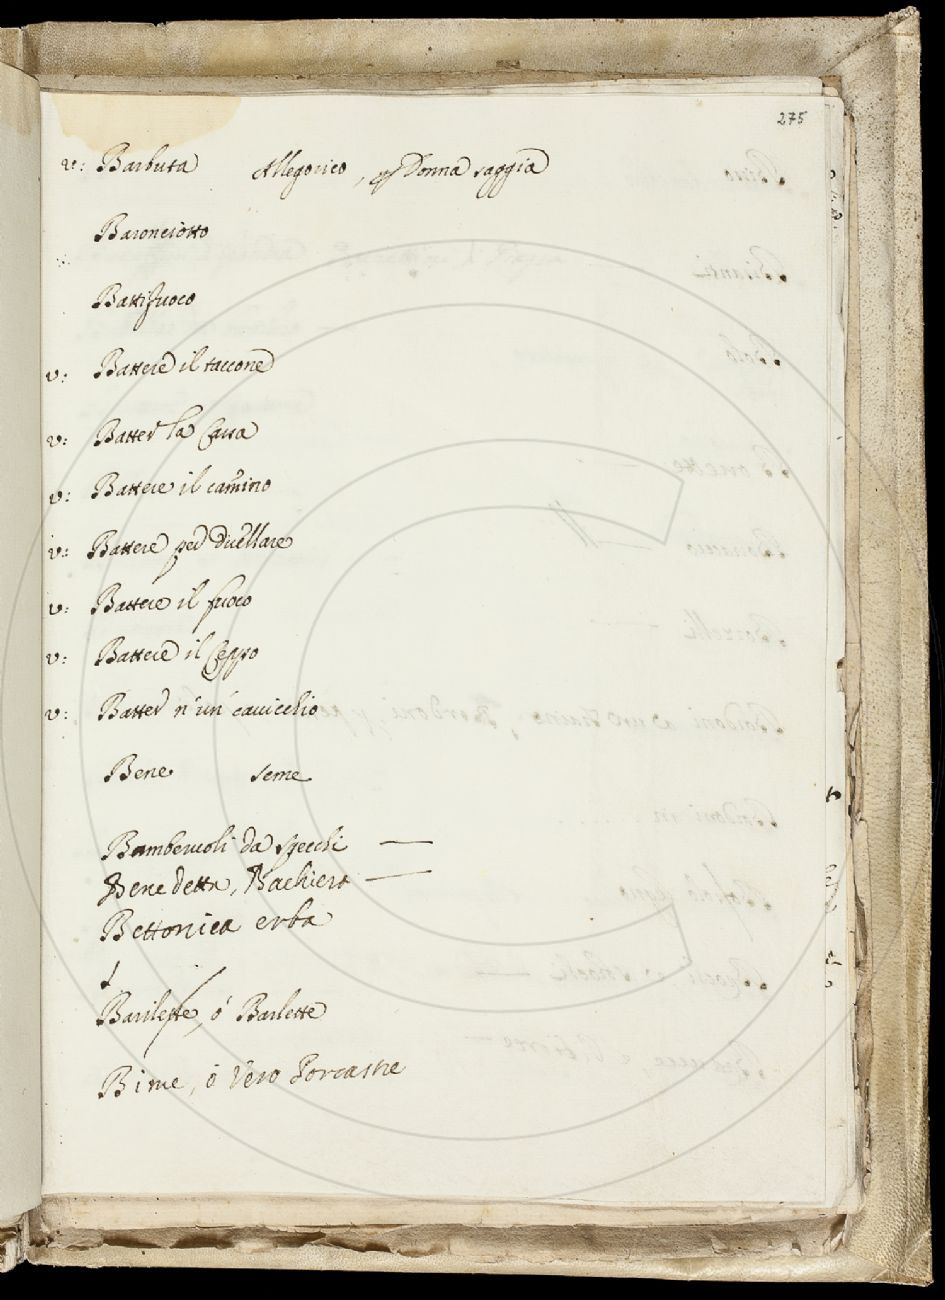 275
v: Barbuta Allegorico, p Donna saggia
Baronciotto
Battifuoco
v: Battere il taccone
v: Batter la Cassa
v: Battere il camino
v: Battere per duellare
v: Battere il fuoco
v: Battere il Ceppo
v: Batter n'un cavicchio
Bene seme
Bambercoli da specchi —
Benedetta, Bachiera —
Bettonica erba
Barilette, ó Barlette
Bime, ó Vero Porcastre